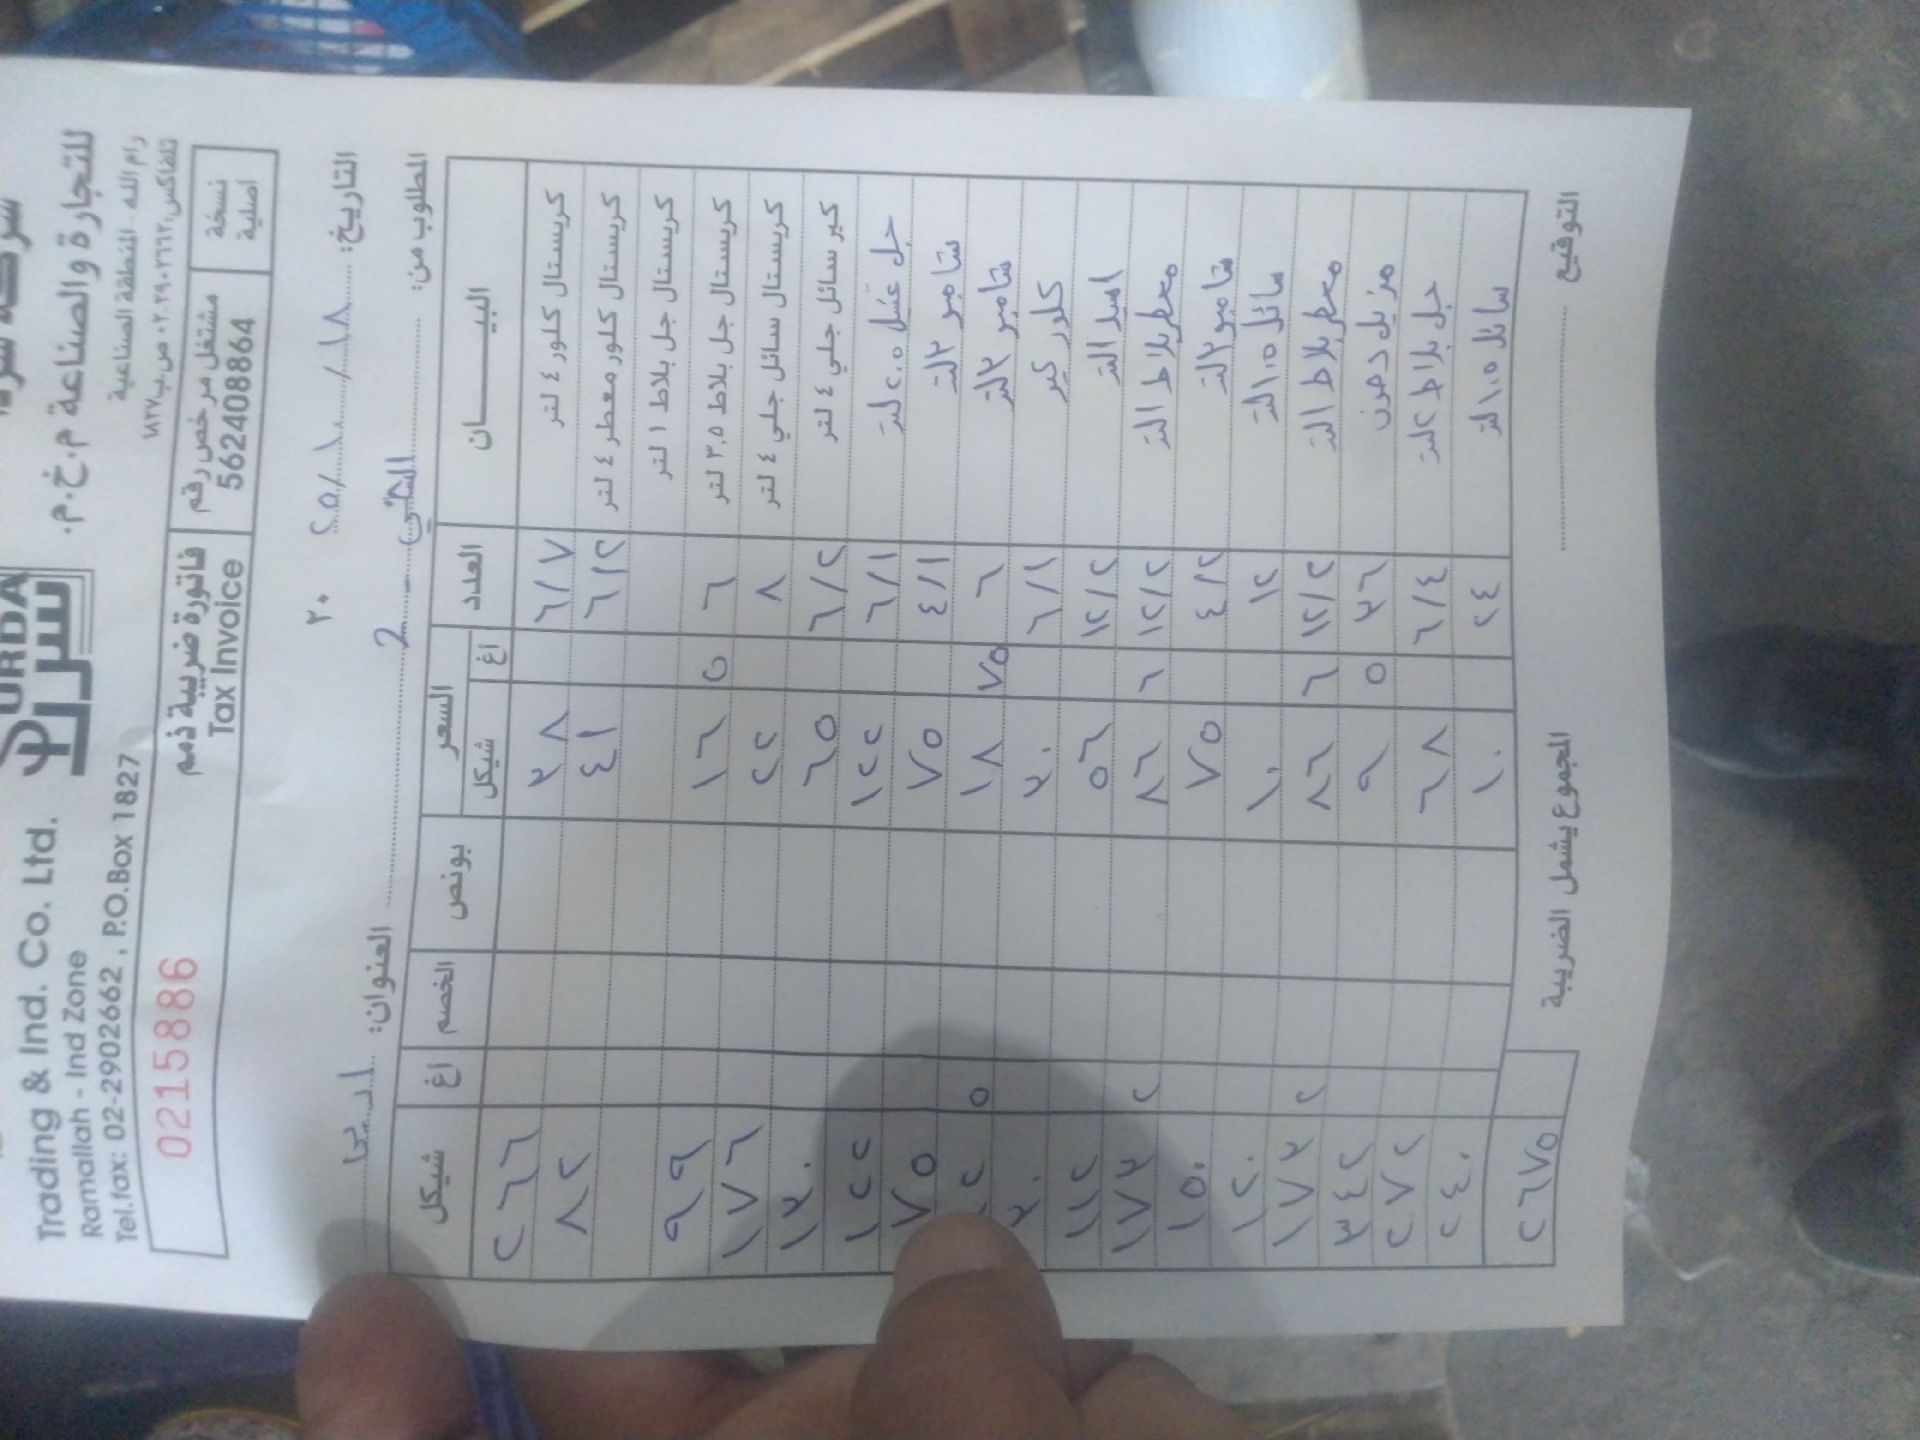 URDA
سردا
Trading & Ind. Co. Ltd.
للتجارة والصناعة م.خ.م.
Ramallah - Ind Zone
رام الله - المنطقة الصناعية
Tel.fax: 02-2902662 , P.O.Box 1827
تلفاكس: ٢٩٠٢٦٦٢-٠٢ ص.ب ١٨٢٧
0215886
فاتورة ضريبية ذمم
Tax Invoice
مشتغل مرخص رقم
562408864
نسخة
اصلية
التاريخ: ١٨ / ١٠ / ٢٥ ٢٠
المطلوب من:
العنوان: اريحا
البيـــــان العدد السعر بونص الخصم اغ شيكل
شيكل اغ
كريستال كلور ٤ لتر ٦/٧ ٣٨ ٢٦٦
كريستال كلور معطر ٤ لتر ٦/٢ ٤١ ٨٢
كريستال جل بلاط ١ لتر
كريستال جل بلاط ٣.٥ لتر ٦ ١٦ ٥ ٩٩
كريستال سائل جلي ٤ لتر ٨ ٢٢ ١٧٦
كير سائل جلي ٤ لتر ٦/٢ ٦٥ ١٣٠
جل غسيل ٢.٥ لتر ٦/١ ١٢٢ ١٢٢
شامبو ٢ لتر ٤/١ ٧٥ ٧٥
شامبو ٣ لتر ٦ ١٨ ٧٥ ١١٢ ٥
كلور كير ٦/١ ٣٠ ٣٠
اسيد التر ١٢/٢ ٥٦ ١١٢
معطر بلاط التر ١٢/٢ ٨٦ ٦ ١٧٣ ٢
شامبو ٢ لتر ٤/٢ ٧٥ ١٥٠
سائل ١.٥ لتر ١٢ ١٠ ١٢٠
معطر بلاط التر ١٢/٢ ٨٦ ٦ ١٧٣ ٢
مزيل دهون ٣٦ ٩ ٥ ٣٤٢
جل بلاط ٤ لتر ٦/٤ ٦٨ ٢٧٢
سائل ١.٥ لتر ٢٤ ١٠ ٢٤٠
٢٦٧٥
التوقيع
المجموع يشمل الضريبة